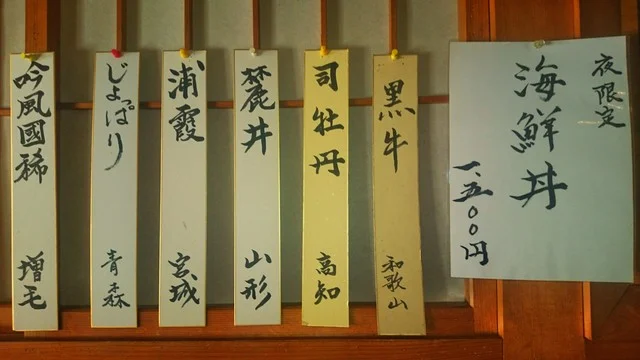 夜限定
海鮮丼
一、五〇〇円
黒牛 和歌山
司牡丹 高知
麓井 山形
浦霞 宮城
じょっぱり 青森
吟風國稀 増毛